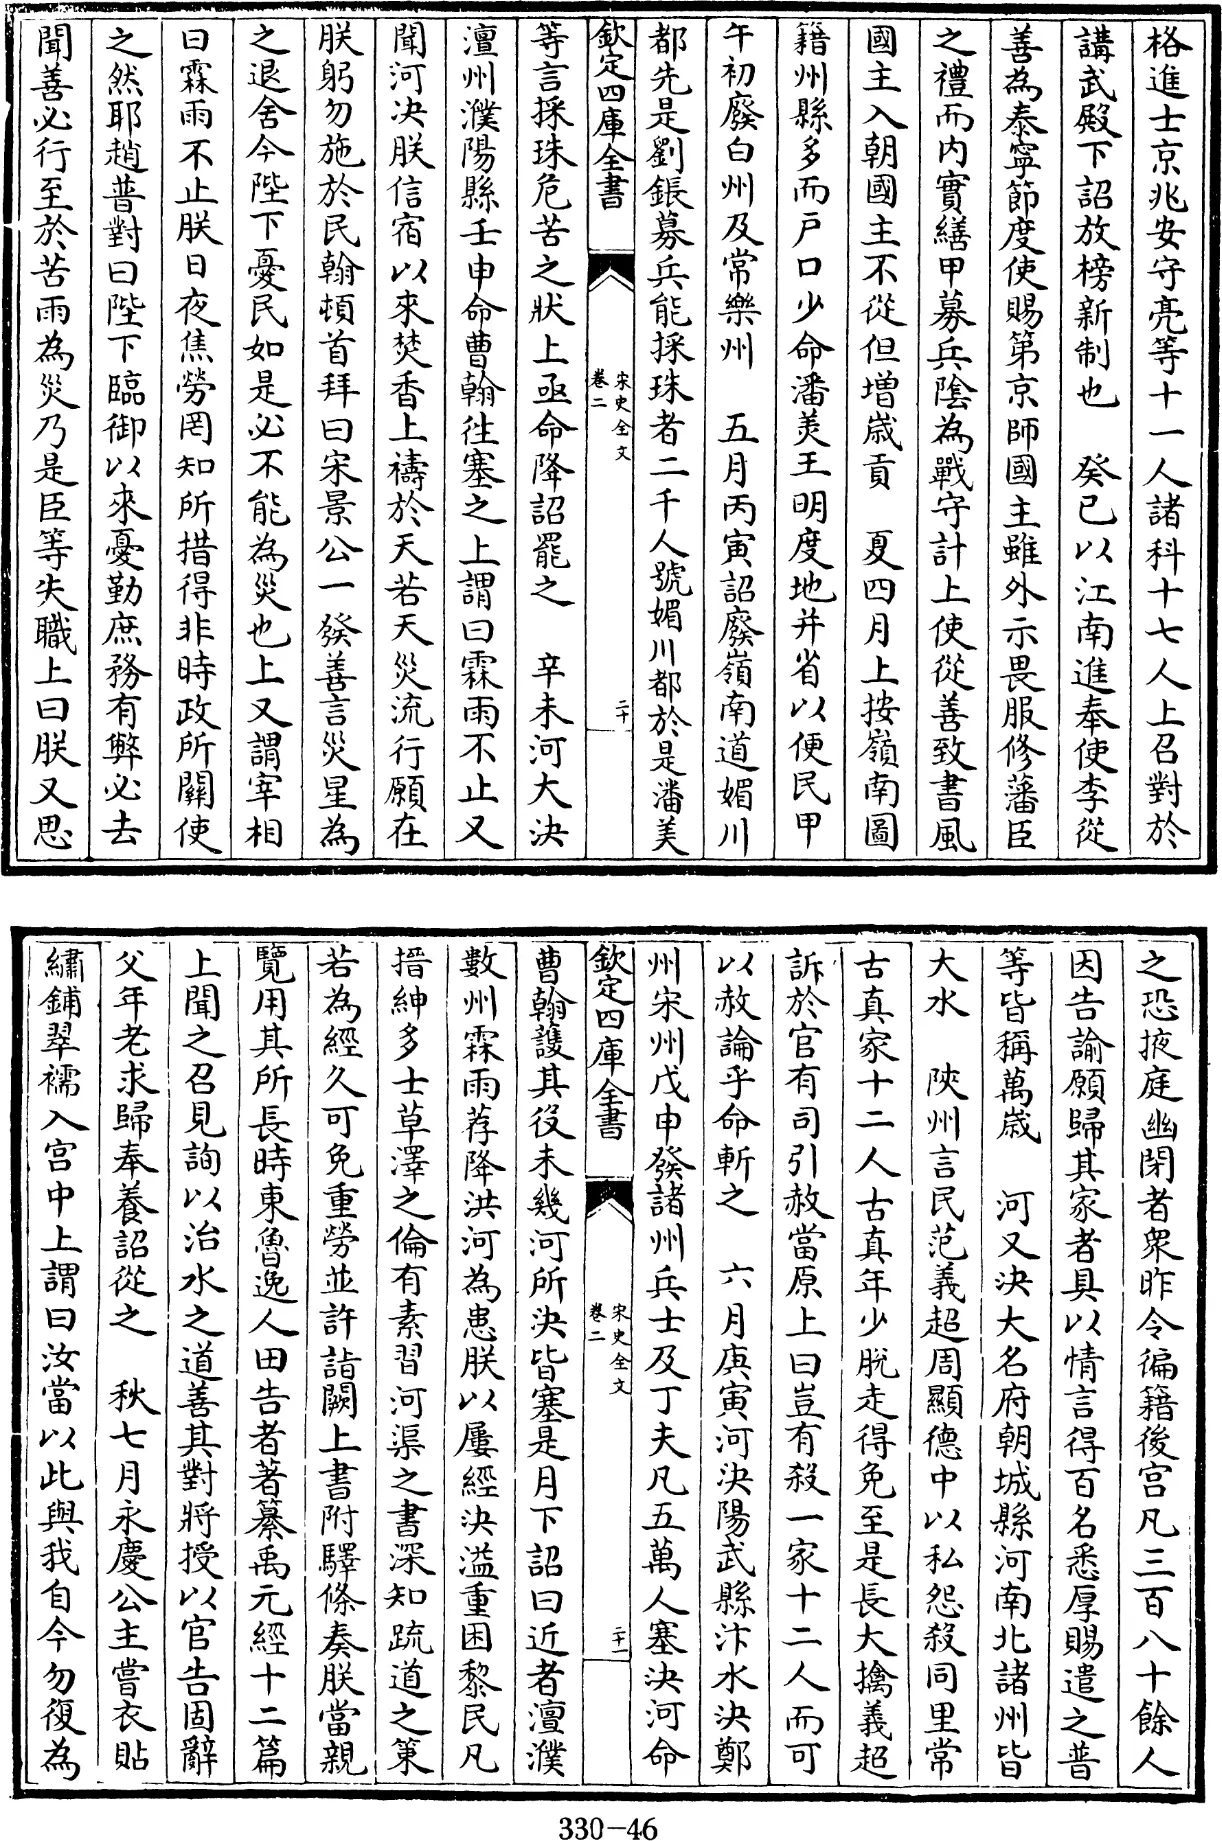 格進士京兆安守亮等十一人諸科十七人上召對於
講武殿下詔放榜新制也　癸已以江南進奉使李從
善為泰寧節度使賜第京師國主雖外示畏服修藩臣
之禮而内實繕甲募兵陰為戰守計上使從善致書風
國主入朝國主不從但增歲貢　夏四月上按嶺南圖
籍州縣多而戸口少命潘美王明度地并省以便民甲
午初廢白州及常樂州　五月丙寅詔廢嶺南道媚川
都先是劉鋹募兵能採珠者二千人號媚川都於是潘美
欽定四庫全書
宋史全文
卷二
二十
等言採珠危苦之狀上亟命降詔罷之　辛未河大決
澶州濮陽縣壬申命曹翰往塞之上謂曰霖雨不止又
聞河决朕信宿以來焚香上禱於天若天災流行願在
朕躬勿施於民翰頓首拜曰宋景公一發善言災星為
之退舍今陛下憂民如是必不能為災也上又謂宰相
曰霖雨不止朕日夜焦勞罔知所措得非時政所闕使
之然耶趙普對曰陛下臨御以來憂勤庶務有弊必去
聞善必行至於苦雨為災乃是臣等失職上曰朕又思
之恐掖庭幽閉者衆昨令徧籍後宫凡三百八十餘人
因告諭願歸其家者具以情言得百名悉厚賜遣之普
等皆稱萬歲　河又決大名府朝城縣河南北諸州皆
大水　陝州言民范義超周顯德中以私怨殺同里常
古真家十二人古真年少脫走得免至是長大擒義超
訴於官有司引赦當原上曰豈有殺一家十二人而可
以赦論乎命斬之　六月庚寅河決陽武縣汴水決鄭
州宋州戊申發諸州兵士及丁夫凡五萬人塞決河命
欽定四庫全書
宋史全文
卷二
二十一
曹翰護其役未幾河所決皆塞是月下詔曰近者澶濮
數州霖雨荐降洪河為患朕以屢經決溢重困黎民凡
搢紳多士草澤之倫有素習河渠之書深知疏道之策
若為經久可免重勞並許詣闕上書附驛條奏朕當親
覽用其所長時東魯逸人田告者著纂禹元經十二篇
上聞之召見詢以治水之道善其對將授以官告固辭
父年老求歸奉養詔從之　秋七月永慶公主嘗衣貼
繡鋪翠襦入宫中上謂曰汝當以此與我自今勿復為
330-46